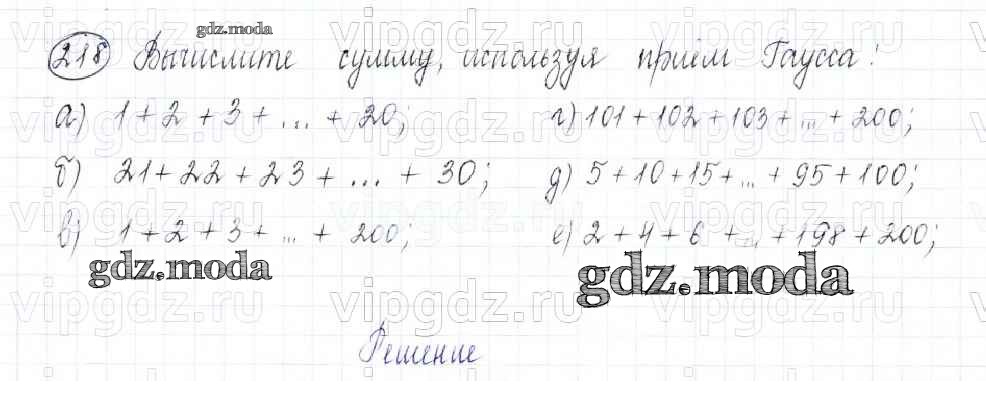 gdz.moda
218 Вычислите сумму, используя приём Гаусса:
а) 1+2+3+...+20;
г) 101+102+103+...+200;
б) 21+22+23+...+30;
д) 5+10+15+...+95+100;
в) 1+2+3+...+200;
е) 2+4+6+...+198+200;
gdz.moda
gdz.moda
vipgdz.ru
Решение